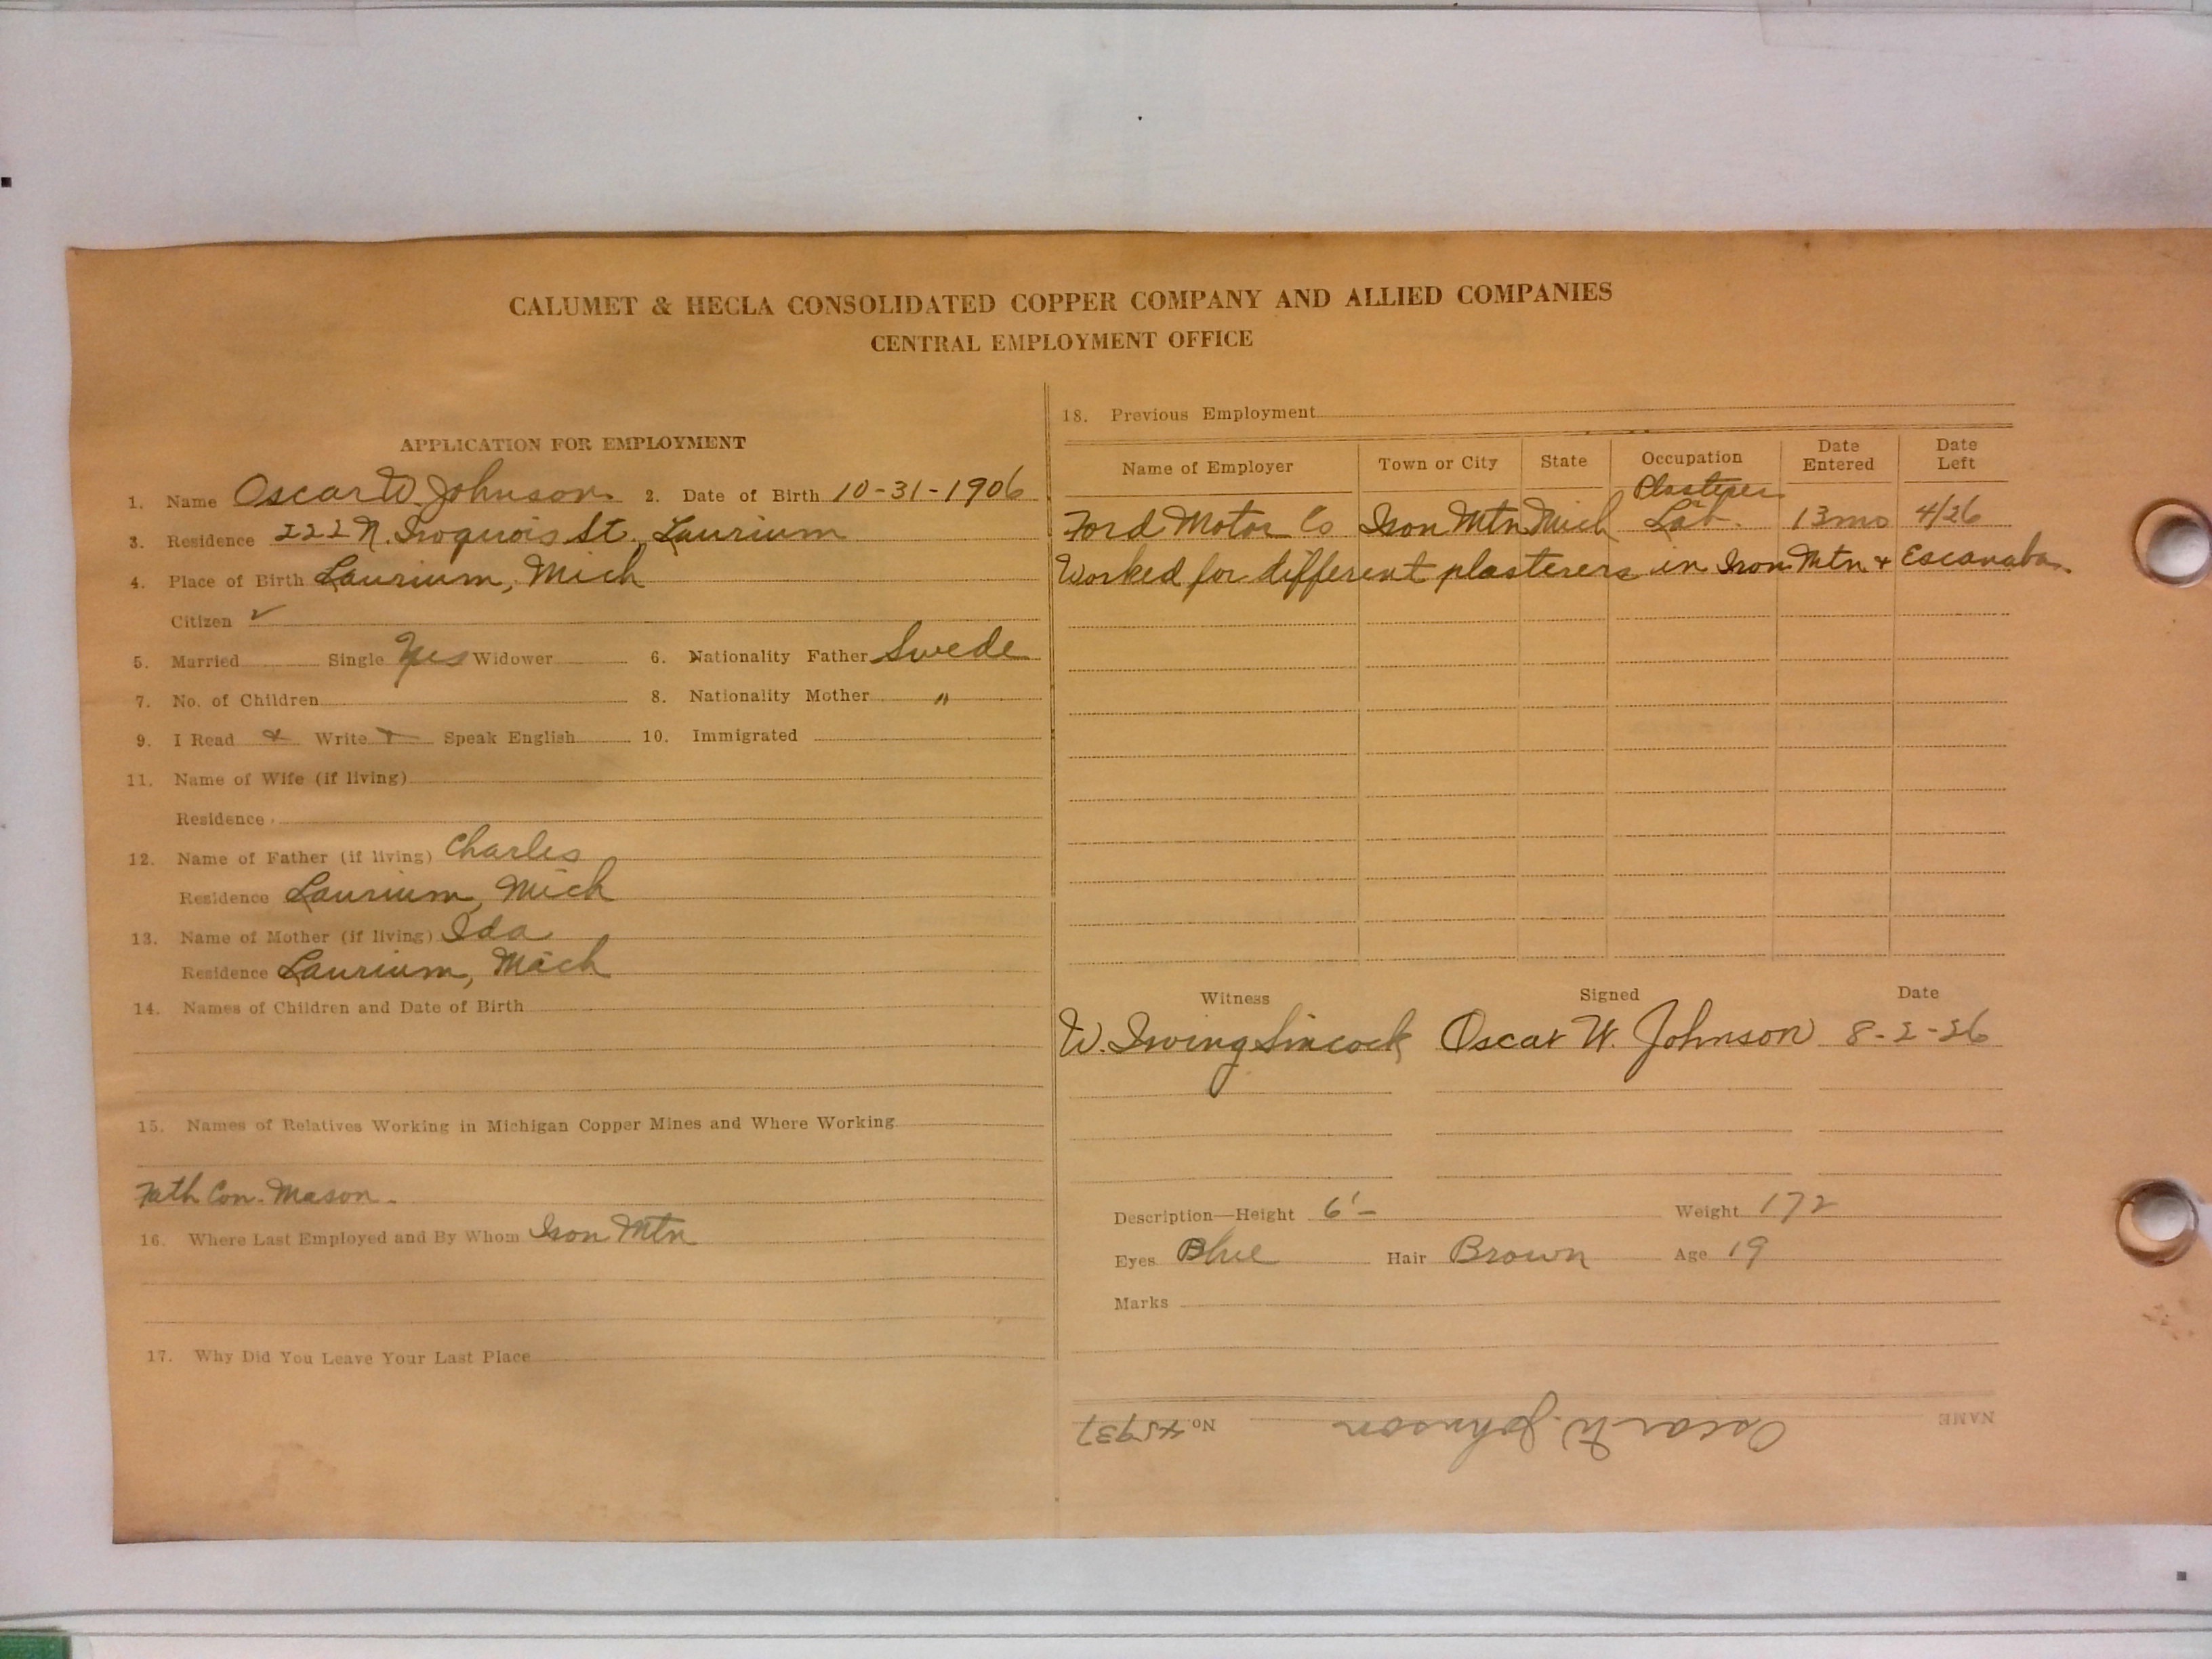 CALUMET & HECLA CONSOLIDATED COPPER COMPANY AND ALLIED COMPANIES
CENTRAL EMPLOYMENT OFFICE
APPLICATION FOR EMPLOYMENT
1. Name Oscar W. Johnson. 2. Date of Birth 10-31-1906
3. Residence 222 N. Iroquois St. Laurium
4. Place of Birth Laurium, Mich
Citizen ✓
5. Married Single Yes Widower 6. Nationality Father Swede
7. No. of Children 8. Nationality Mother "
9. I Read Write Speak English 10. Immigrated
11. Name of Wife (if living)
Residence
12. Name of Father (if living) Charles
Residence Laurium, Mich
13. Name of Mother (if living) Ida
Residence Laurium, Mich
14. Names of Children and Date of Birth
15. Names of Relatives Working in Michigan Copper Mines and Where Working
Fath Con. Mason.
16. Where Last Employed and By Whom Iron Mtn
17. Why Did You Leave Your Last Place
18. Previous Employment
Name of Employer Town or City State Occupation Date Entered Date Left
Plasterer
Ford Motor Co Iron Mtn Mich Lab. 13 mo 4/26
Worked for different plasterers in Iron Mtn & Escanaba.
Witness Signed Date
W. Irving Sincock Oscar W. Johnson 8-2-26
Description—Height 6'- Weight 172
Eyes Blue Hair Brown Age 19
Marks
NAME Oscar W. Johnson No. 45937